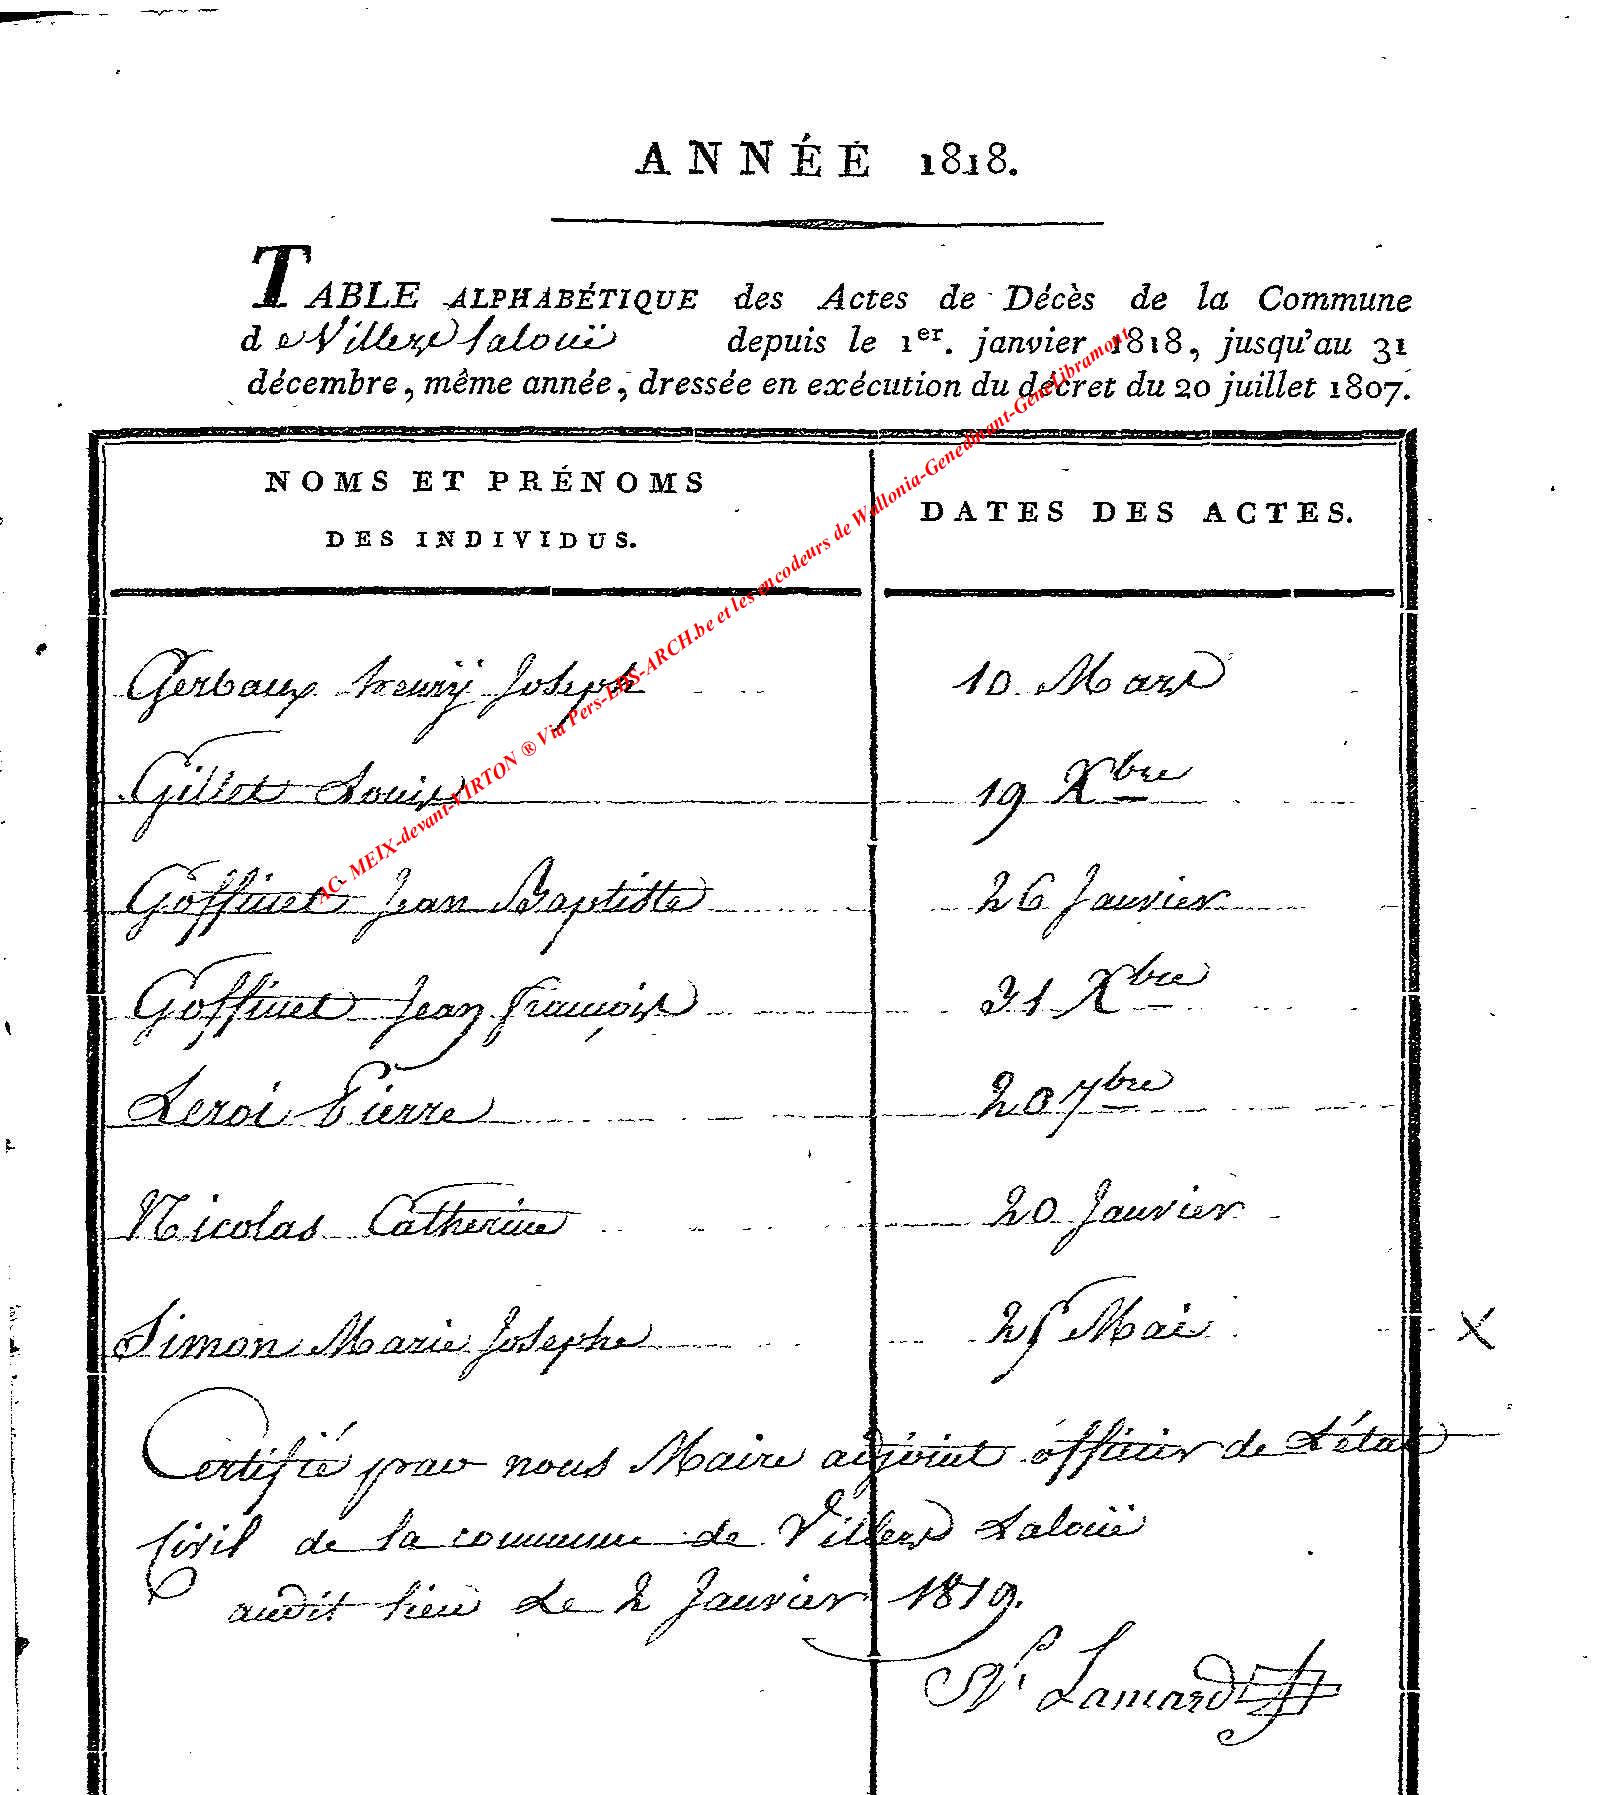 ANNÉE 1818.
TABLE ALPHABÉTIQUE des Actes de Décès de la Commune
de Villers laloüe depuis le 1er. janvier 1818, jusqu'au 31
décembre, même année, dressée en exécution du décret du 20 juillet 1807.
NOMS ET PRÉNOMS
DES INDIVIDUS.
DATES DES ACTES.
Gerbaux henrÿ Joseph 10 Mars
Gillot Louis 19 Xbre
Goffinet Jean Baptiste 26 Janvier
Goffinet Jean françois 31 Xbre
Leroi Pierre 20 7bre
Nicolas Catherine 20 Janvier
Simon Marie Josephe 25 Mai X
Certifié par nous Maire adjoint officier de L'état
Civil de la commune de Villers Laloüe
audit lieu Le 2 Janvier 1819.
Lamard
AC- MEIX-devant-VIRTON ® Via Pers-LDS-ARCH.be et les encodeurs de Wallonia-Genedinant-GeneLibramont